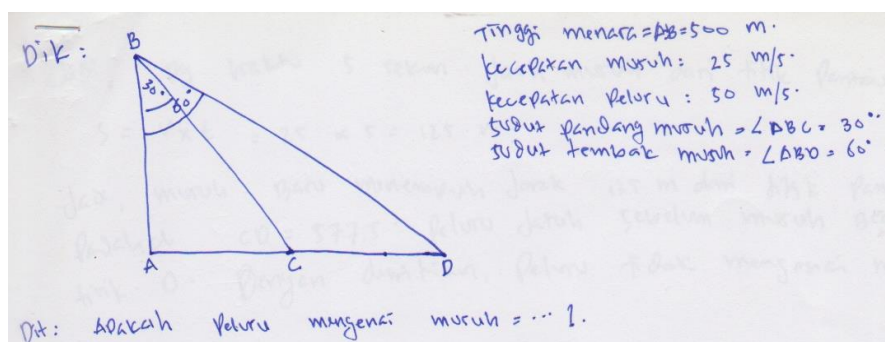 Dik:
B
30°
60°
A
C
D
Tinggi menara = AB = 500 m.
kecepatan musuh: 25 m/s.
kecepatan Peluru : 50 m/s.
sudut pandang musuh = ∠ABC = 30°.
sudut tembak musuh = ∠ABD = 60°
Dit: Apakah Peluru mengenai musuh = ... ?